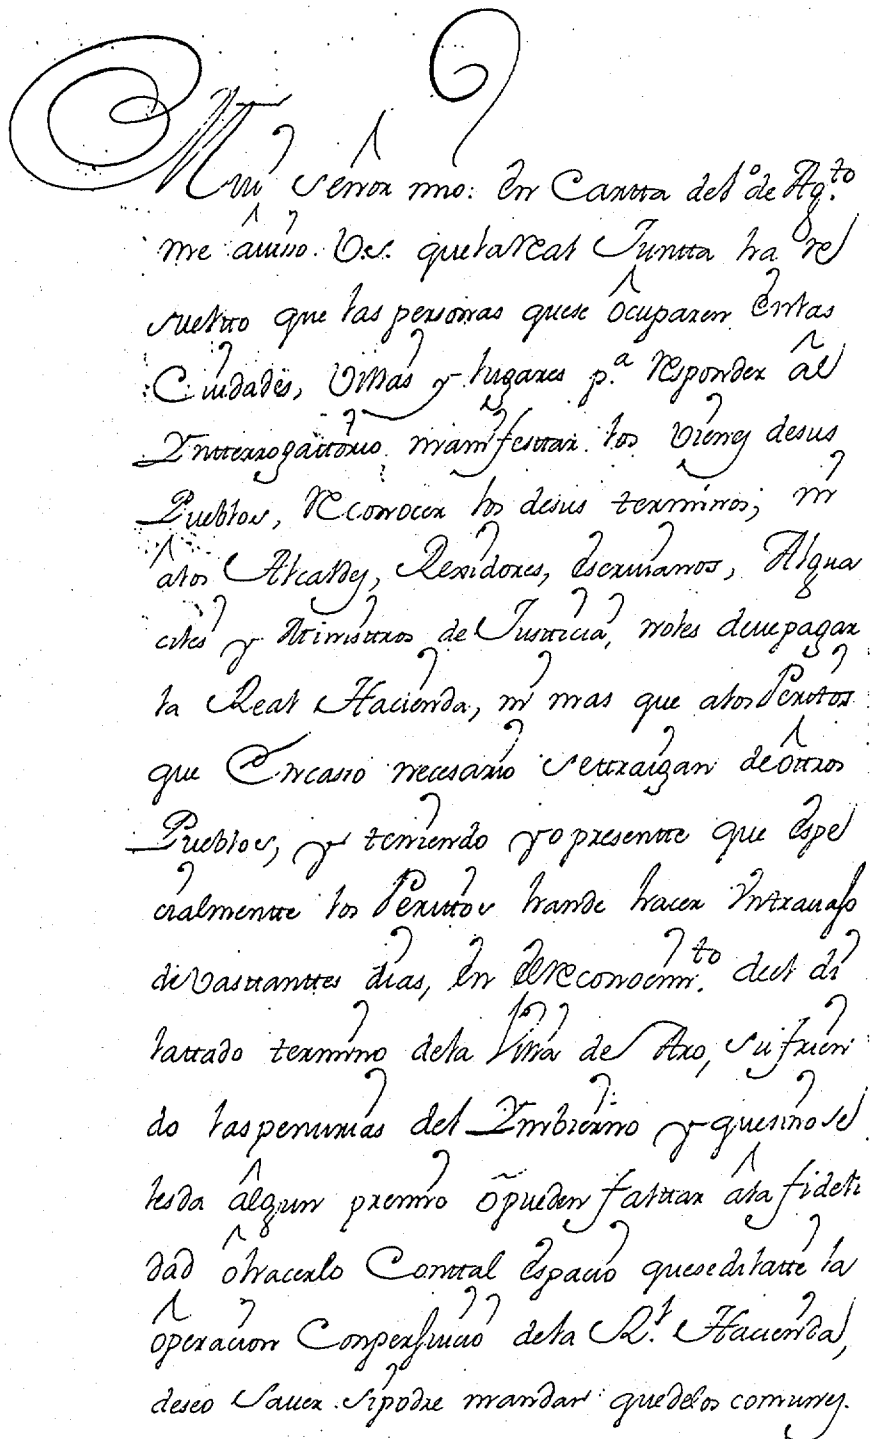 Mui señor mio: En Cartta del 1º de Ag.to
me auisso Vs. que la real Juntta ha re
sueltto que las personas que se ocuparen en las
Ciudades, Villas y lugares p.a responder al
Ynterrogattorio manifesttar los vienes de sus
Pueblos, reconocer los de sus terminos; ni
a los Alcaldes, Rexidores, escriuanos, Algua
ciles y Ministtros de Justticia, no les deue pagar
la Real Hacienda, ni mas que a los Peritos
que en caso necesario se ttraigan de ottros
Pueblos, y teniendo yo presentte que espe
cialmentte los Perittos han de hacer un trauajo
de vasttanttes dias, en el reconocim.to del di
lattado termino de la Villa de Aro, sufrien
do las penurias del Ynbierno y que sino se
les da algun premio o pueden falttar a la fideli
dad o hacerlo Conttal espacio que se dilatte la
operacion Con perjuicio de la R.l Hacienda,
deseo sauer si podre mandar que de los comunes.